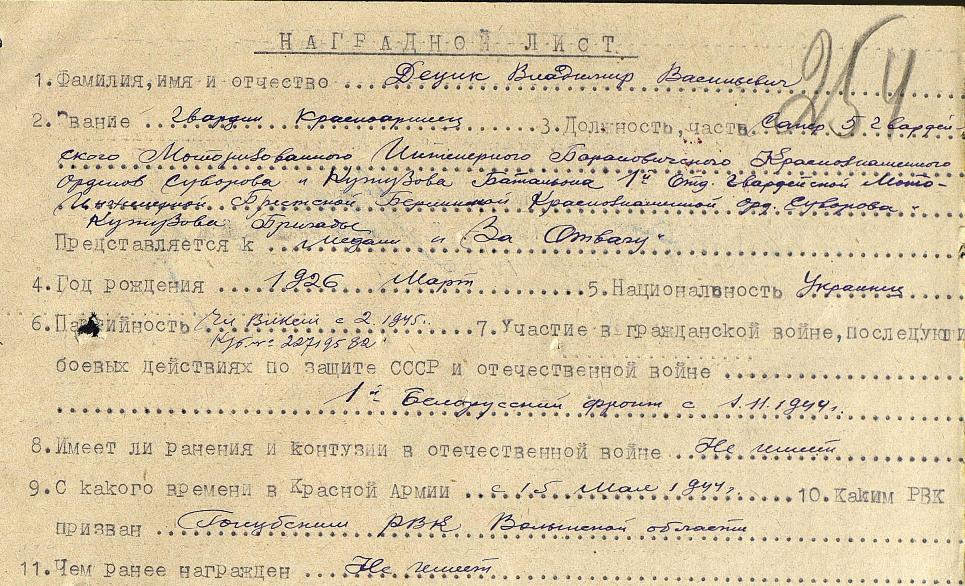 254
НАГРАДНОЙ ЛИСТ
1.Фамилия,имя и отчество ... Децик Владимир Васильевич
2.Звание ... Гвардии Красноармеец ... 3.Должность,часть Сапер 5 Гвардей-
ского Моторизованного Инженерного Барановичского Краснознаменного
Орденов Суворова и Кутузова Батальона 1й Отд. Гвардейской Мото-
Инженерной Брестской Берлинской Краснознаменной орд. Суворова и
Кутузова Бригады
Представляется к ... Медали "За Отвагу"
4.Год рождения ... 1926 Март ... 5.Национальность Украинец
6.Партийность Чл. ВЛКСМ с 2.1945г. ... 7.Участие в гражданской войне,последующи
к/б №
боевых действиях по защите СССР и отечественной войне ...
1й Белорусский фронт с 1.11.1944г.
8.Имеет ли ранения и контузии в отечественной войне ... Не имеет
9.С какого времени в Красной Армии ... с 15 Мая 1944г. ... 10.Каким РВК
призван ... РВК Волынской области
11.Чем ранее награжден ... Не имеет